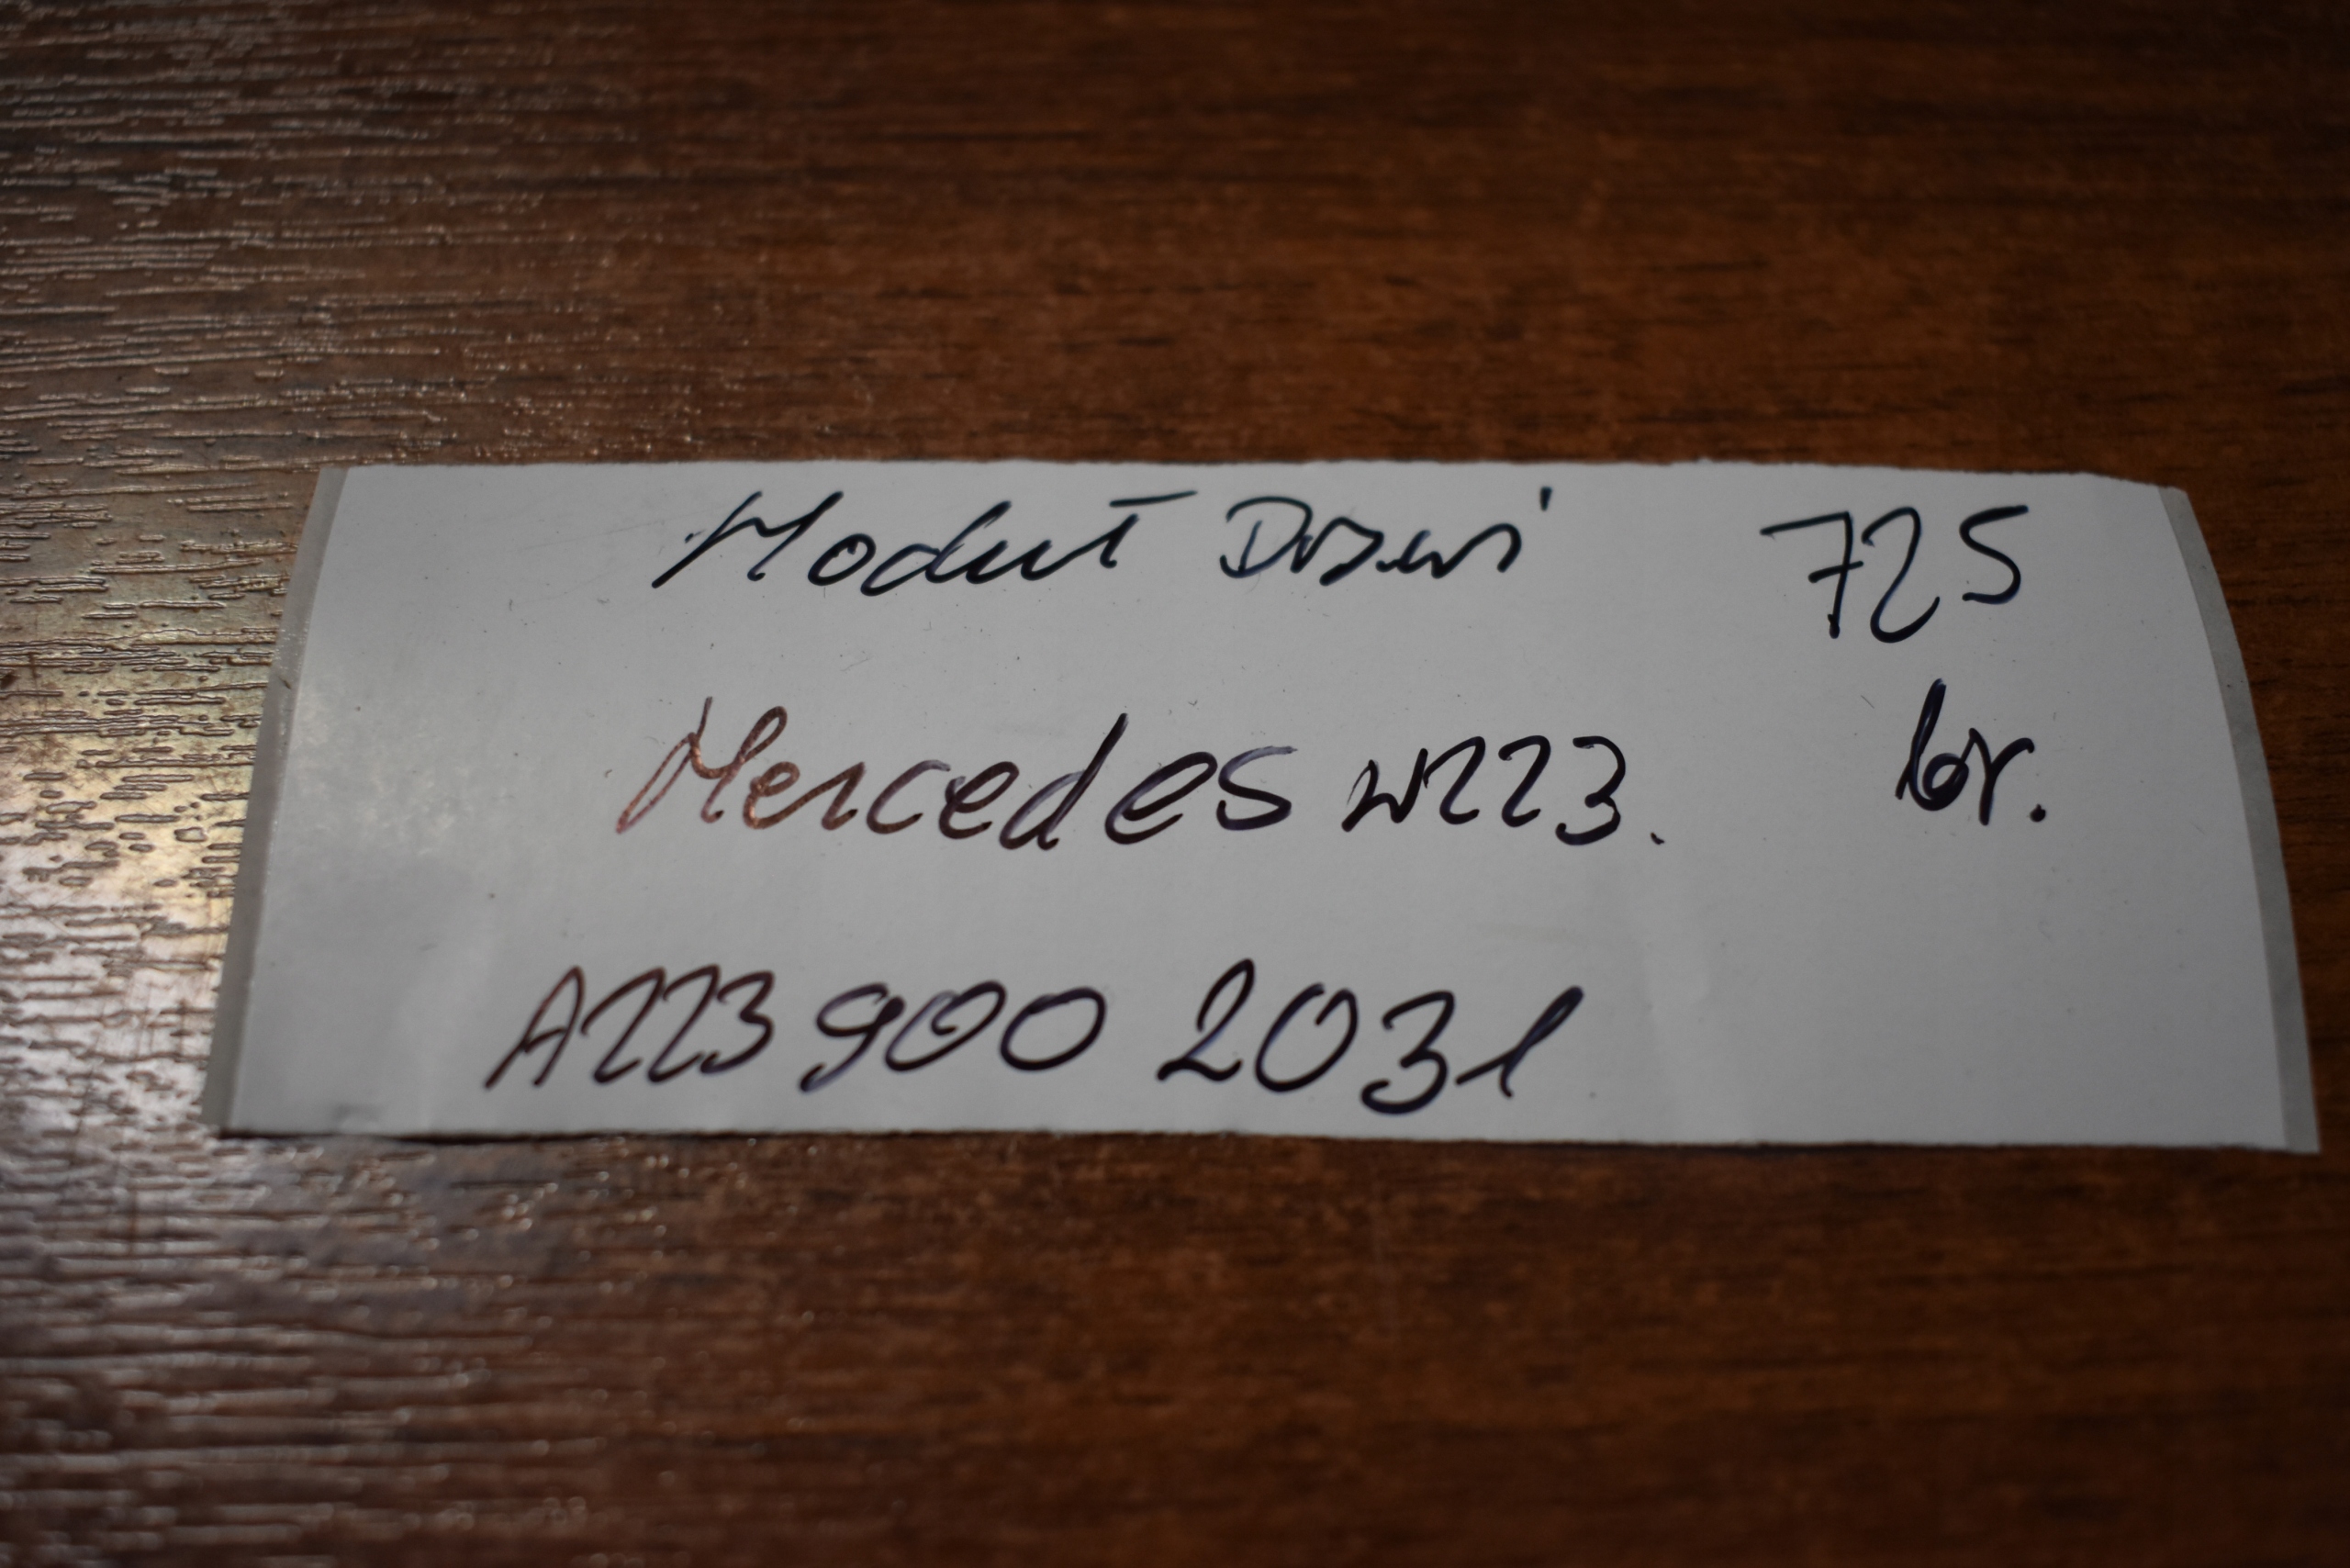 Moduł Drzwi 725
Mercedes W223. br.
A223 900 2031